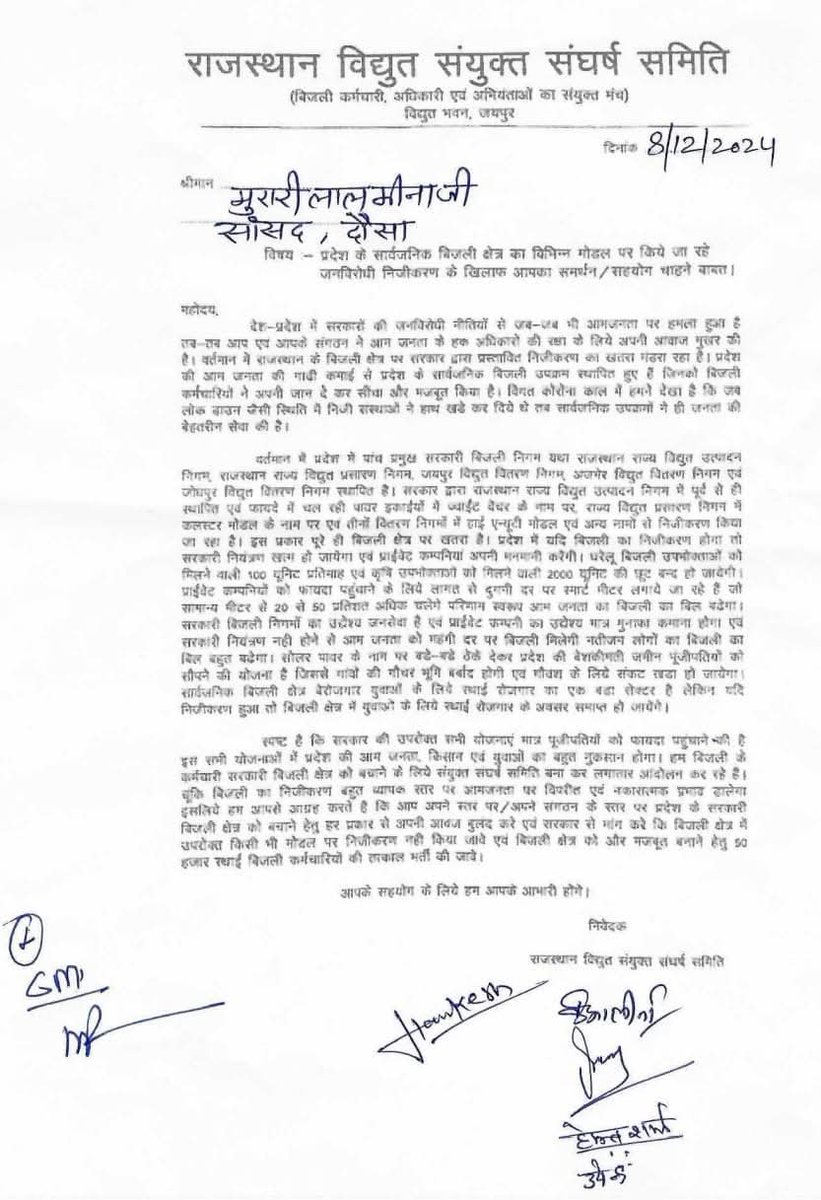 राजस्थान विद्युत संयुक्त संघर्ष समिति
(बिजली कर्मचारी, अधिकारी एवं अभियंताओं का संयुक्त मंच)
विद्युत भवन, जयपुर
दिनांक 8/12/2024
श्रीमान मुरारी लाल मीना जी
सांसद, दौसा
विषय – प्रदेश के सार्वजनिक बिजली क्षेत्र का विभिन्न मोडल पर किये जा रहे
जनविरोधी निजीकरण के खिलाफ आपका समर्थन/सहयोग चाहने बाबत।
महोदय,
देश-प्रदेश में सरकारों की जनविरोधी नीतियों से जब-जब भी आमजनता पर हमला हुआ है
तब-तब आप एवं आपके संगठन ने आम जनता के हक अधिकारो की रक्षा के लिये अपनी आवाज मुखर की
है। वर्तमान में राजस्थान के बिजली क्षेत्र पर सरकार द्वारा प्रस्तावित निजीकरण का खतरा मंडरा रहा है। प्रदेश
की आम जनता की गाढी कमाई से प्रदेश के सार्वजनिक बिजली उपक्रम स्थापित हुए हैं जिनको बिजली
कर्मचारियों ने अपनी जान दे कर सींचा और मजबूत किया है। विगत कोरोना काल में हमने देखा है कि जब
लोक डाउन जैसी स्थिति में निजी संस्थाओ ने हाथ खडे कर दिये थे तब सार्वजनिक उपक्रमों ने ही जनता की
बेहतरीन सेवा की है।
वर्तमान में प्रदेश में पांच प्रमुख सरकारी बिजली निगम यथा राजस्थान राज्य विद्युत उत्पादन
निगम, राजस्थान राज्य विद्युत प्रसारण निगम, जयपुर विद्युत वितरण निगम, अजमेर विद्युत वितरण निगम एवं
जोधपुर विद्युत वितरण निगम स्थापित है। सरकार द्वारा राजस्थान राज्य विद्युत उत्पादन निगम में पूर्व से ही
स्थापित एवं फायदे में चल रही पावर इकाईयों में ज्वाईंट वेंचर के नाम पर, राज्य विद्युत प्रसारण निगम में
कलस्टर मोडल के नाम पर एवं तीनों वितरण निगमों में हाई एन्यूटी मोडल एवं अन्य नामों से निजीकरण किया
जा रहा है। इस प्रकार पूरे ही बिजली क्षेत्र पर खतरा है। प्रदेश में यदि बिजली का निजीकरण होगा तो
सरकारी नियंत्रण खत्म हो जायेगा एवं प्राईवेट कम्पनियां अपनी मनमानी करेंगी। घरेलू बिजली उपभोक्ताओं को
मिलने वाली 100 यूनिट प्रतिमाह एवं कृषि उपभोक्ताओं को मिलने वाली 2000 यूनिट की छूट बन्द हो जायेगी।
प्राईवेट कम्पनियों को फायदा पहुंचाने के लिये लागत से दुगनी दर पर स्मार्ट मीटर लगाये जा रहे हैं जो
सामान्य मीटर से 20 से 50 प्रतिशत अधिक चलेंगे परिणाम स्वरूप आम जनता का बिजली का बिल बढेगा।
सरकारी बिजली निगमों का उद्येश्य जनसेवा है एवं प्राईवेट कम्पनी का उद्येश्य मात्र मुनाफा कमाना होगा एवं
सरकारी नियंत्रण नही होने से आम जनता को महंगी दर पर बिजली मिलेगी नतीजन लोगों का बिजली का
बिल बहुत बढेगा। सोलर पावर के नाम पर बडे-बडे ठेके देकर प्रदेश की बेशकीमती जमीन पूंजीपतियों को
सौपने की योजना है जिससे गांवों की गौचर भूमि बर्बाद होगी एवं गौवंश के लिये संकट खडा हो जायेगा।
सार्वजनिक बिजली क्षेत्र बेरोजगार युवाओं के लिये स्थाई रोजगार का एक बडा सेक्टर है लेकिन यदि
निजीकरण हुआ तो बिजली क्षेत्र में युवाओं के लिये स्थाई रोजगार के अवसर समाप्त हो जायेंगे।
स्पष्ट है कि सरकार की उपरोक्त सभी योजनाएं मात्र पूंजीपतियों को फायदा पहुंचाने की है
इस सभी योजनाओं में प्रदेश की आम जनता, किसान एवं युवाओं का बहुत नुकसान होगा। हम बिजली के
कर्मचारी सरकारी बिजली क्षेत्र को बचाने के लिये संयुक्त संघर्ष समिति बना कर लगातार आंदोलन कर रहे है।
चूंकि बिजली का निजीकरण बहुत व्यापक स्तर पर आमजनता पर विपरीत एवं नकारात्मक प्रभाव डालेगा
इसलिये हम आपसे आग्रह करते है कि आप अपने स्तर पर/अपने संगठन के स्तर पर प्रदेश के सरकारी
बिजली क्षेत्र को बचाने हेतु हर प्रकार से अपनी आवज बुलंद करे एवं सरकार से मांग करे कि बिजली क्षेत्र में
उपरोक्त किसी भी मोडल पर निजीकरण नही किया जावे एवं बिजली क्षेत्र को और मजबूत बनाने हेतु 50
हजार स्थाई बिजली कर्मचारियों की तत्काल भर्ती की जावे।
आपके सहयोग के लिये हम आपके आभारी होंगे।
निवेदक
राजस्थान विद्युत संयुक्त संघर्ष समिति